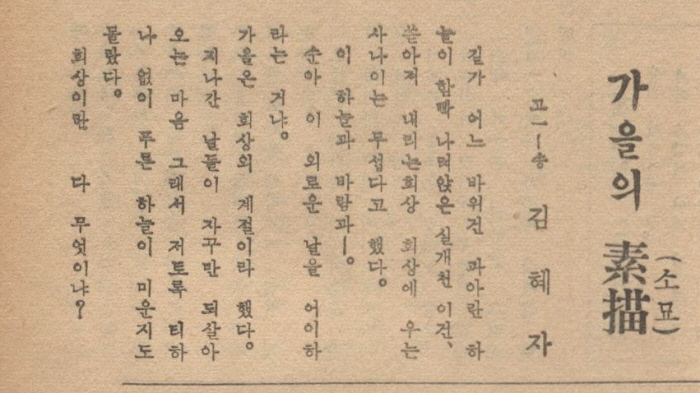 가을의 素描
(소묘)
고一송 김혜자
길가 어느 바위건 파아란 하
늘이 함빡 나려앉은 실개천 이건、
쏟아저 내리는회상 회상에 우는
사나이는 무섭다고 했다。
이 하늘과 바람과ー。
순아 이 외로운 날을 어이하
라는 거냐。
가을은 회상의 계절이라 했다。
지나간 날들이 자꾸만 되살아
오는 마음 그래서 저토록 티하
나 없이 푸른 하늘이 미운지도
몰랐다。
회상이란 다 무엇이냐?